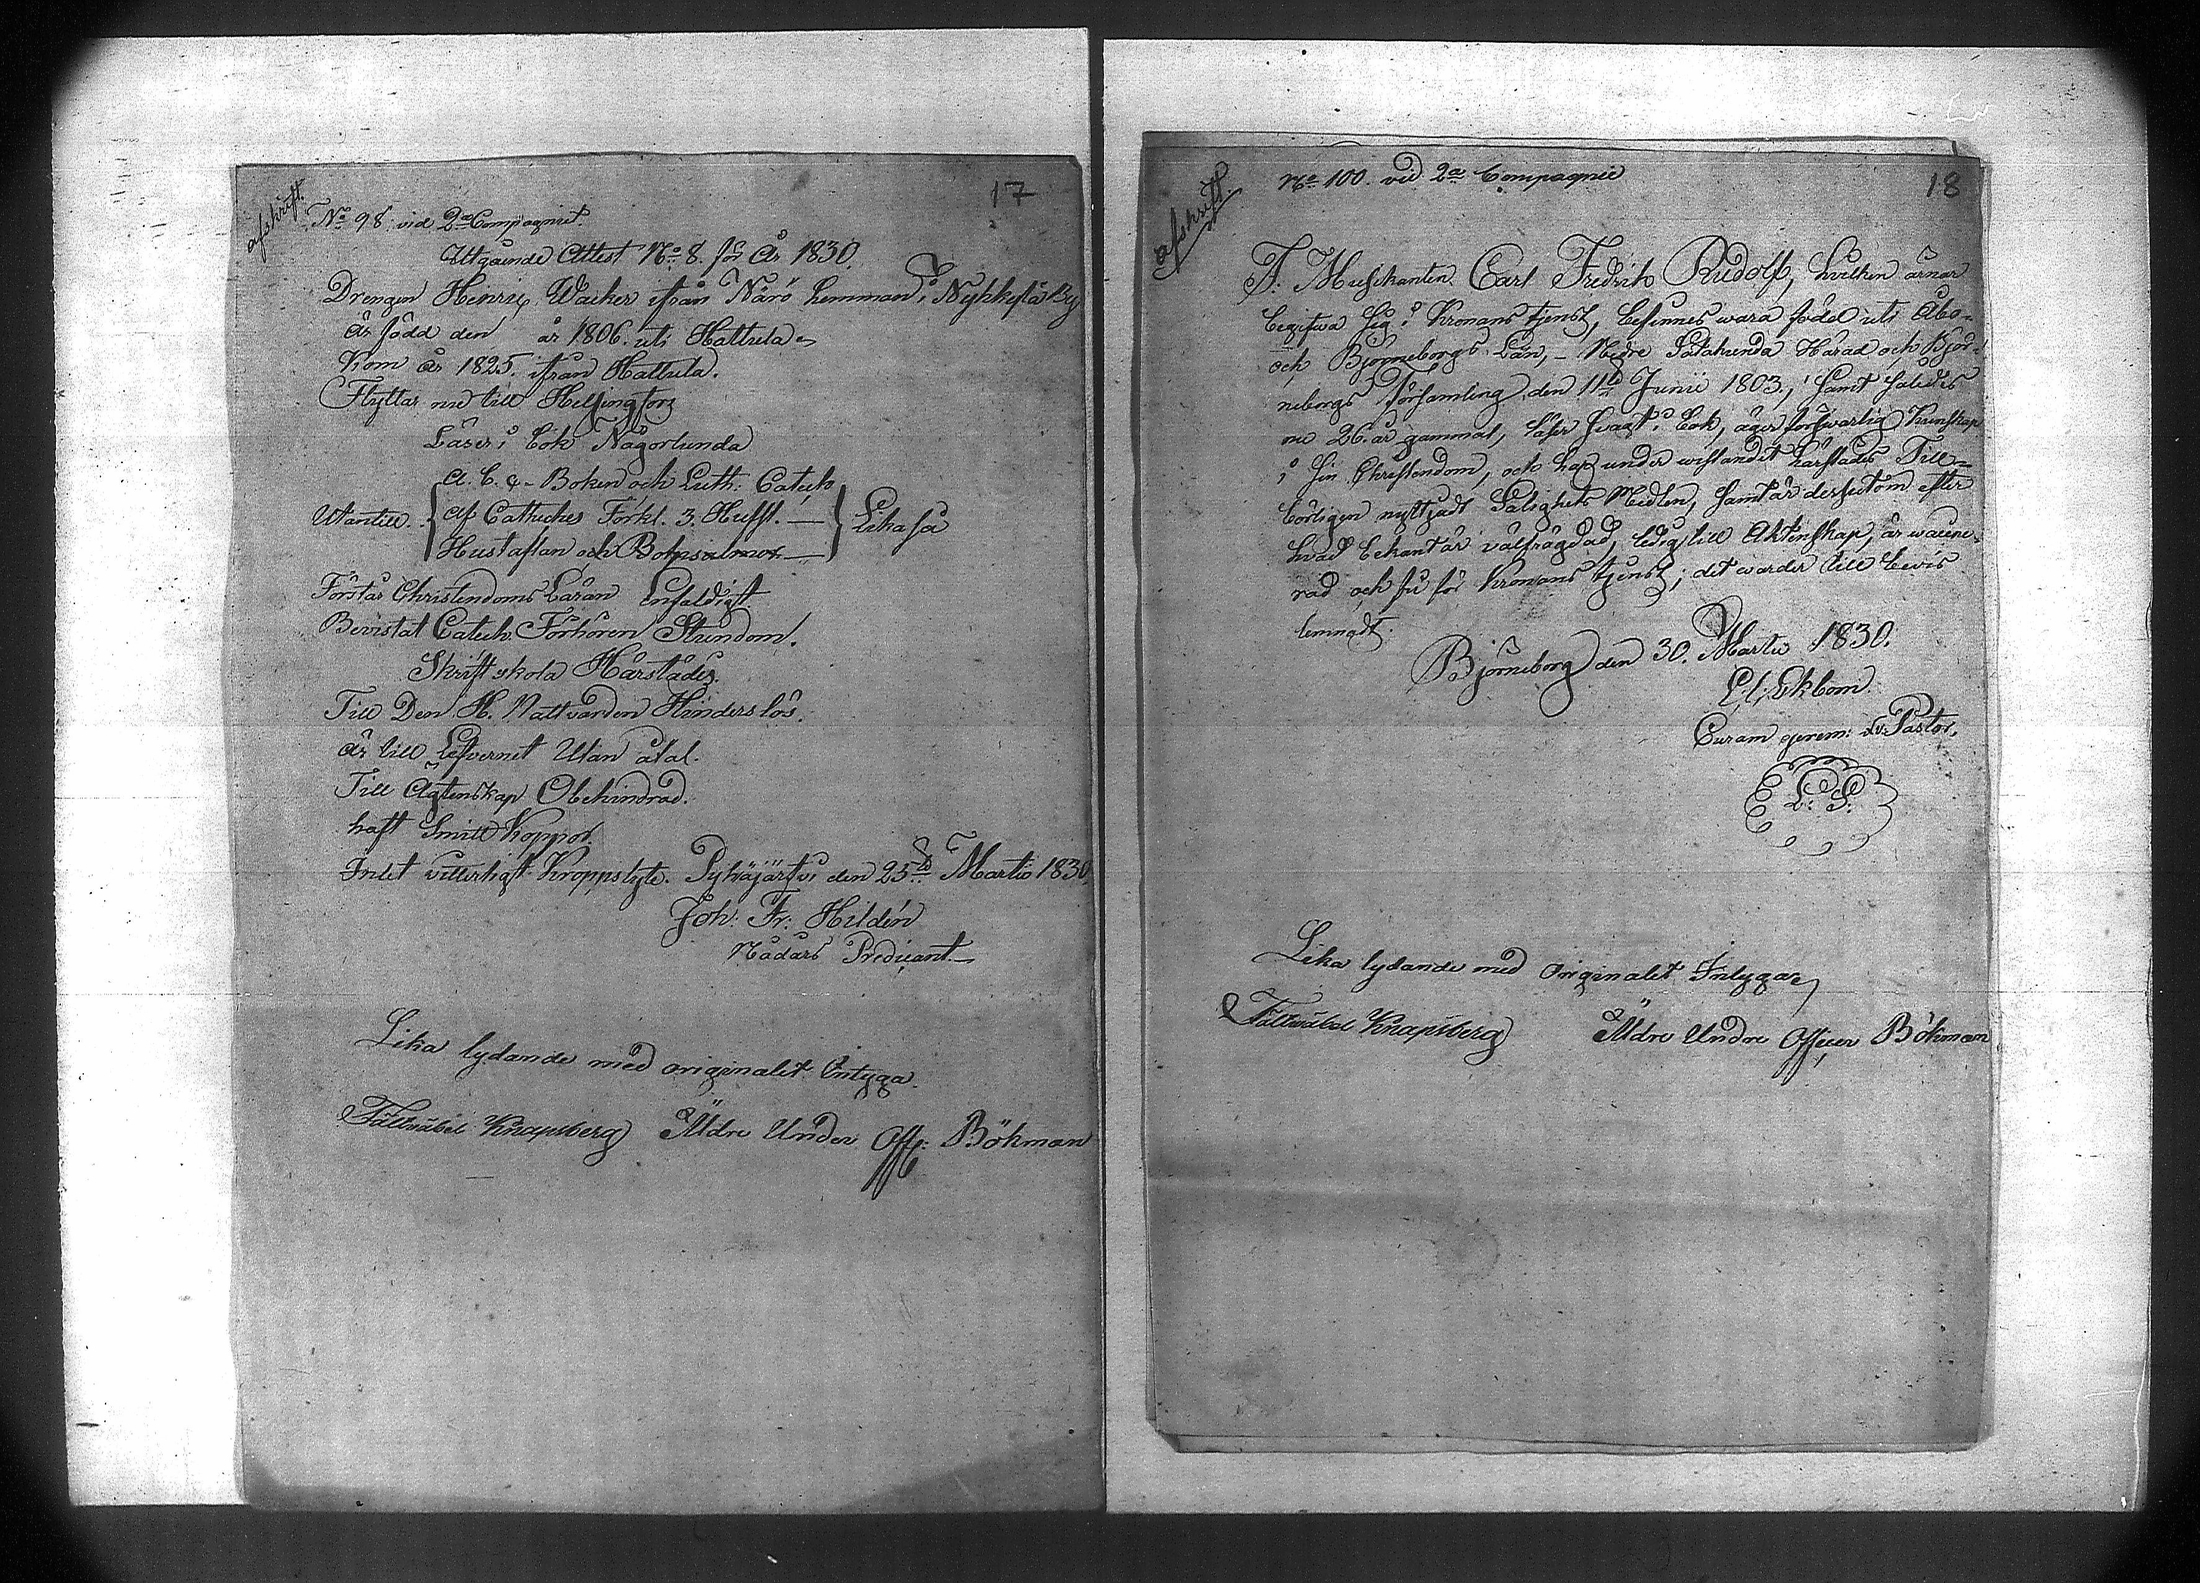 afskrift.
17
No 98 vid 2a Compagniet.
Utgående Attest No 8. för År 1830.
Drengen Henrix Wacker ifrån Närö hemman i Nyhkälä By
är född den år 1806. uti Hattula
Kom år 1825. ifrån Hattula.
Flyttar nu till Helsingfors
Läser i bok Någorlunda
Utantill. A. B. C. Boken och Luth. Catech
af Cathiches Förkl. 3. Hufst. — Likaså
Hustaflan och Botpsalmor —
Förstår Christendoms Läran Enfaldigt
Bevistat Catech. Förhören Stundom.
Skriftskola Härstädes.
Till Den H. Nattvarden Hinderslös.
är till Lefvernet Utan åtal.
Till Ägtenskap Obehindrad.
haft Smitt Koppor.
Intet vitterligt Kroppslyte. Pyhäjärtvi den 25te Martii 1830.
Joh: Fr: Hildén
Nådårs Predicant.
Lika lydande med originalet Intyga.
Fältväbel Knapsberg Äldre Under Off: Böhman
afskrift.
No 100. vid 2a Compagnie
18
F. Musikanten Carl Fredrik Rudolf, hvilken ärnar
begifwa sig i Kronans tjenst, befinnes wara född uti Åbo-
och Björneborgs Län, – Nedre Satakunda Härad och Björ-
neborgs Församling den 11te Junii 1803, samt således
nu 26 år gammal, läser svagt i bok, äger försvarlig kunskap
i sin Christendom, och har under wistandet härstädes Till-
börligen nyttjadt Salighets Medlen, samt är dessutom efter
hvad bekant är välfrägdad, ledig till Äktenskap, är waccine-
rad och fri för Kronans tjenst; det warder till bevis
lemnadt.
Björneborg den 30. Martii 1830.
Ekbom
Curam gerem: v. Pastor.
L. S.
Lika lydande med Originalet Intyga,
Fältväbel Knapsberg Äldre Undre Officer Böhman